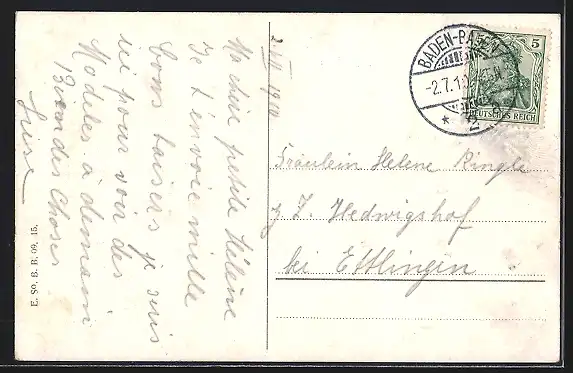 2 VII 1910
Ma chère petite Hélène
Je t'envoie mille
bons baisers je suis
ici pour voir des
Modèles à demain
Bien des Choses
Luise
E. So. B. B. 09. 15.
BADEN-BADEN
-2.7.1
* 2
5
DEUTSCHES REICH
Fräulein Helene Ringle
z. Z. Hedwigshof
bei Ettlingen